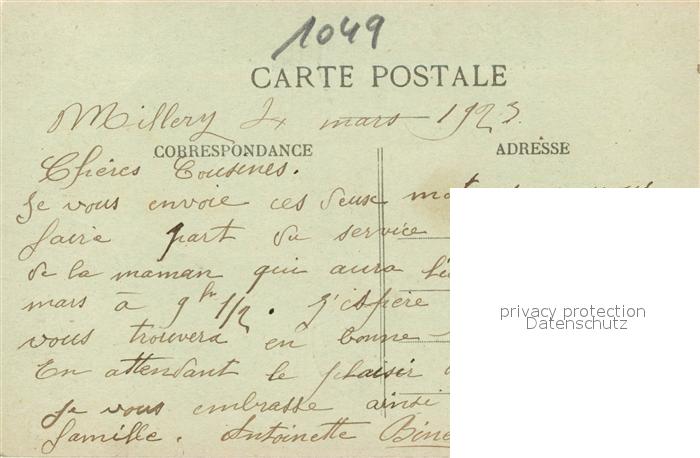 1049
CARTE POSTALE
Millery 24 mars 1923.
CORRESPONDANCE
ADRESSE
Chères Cousines.
Je vous envoie ces deux mot
faire part du service
de la maman qui aura
mars à 9h 1/2. J'espère
vous trouvera en bonne
En attendant le plaisir
Je vous embrasse ainsi
famille. Antoinette
privacy protection
Datenschutz